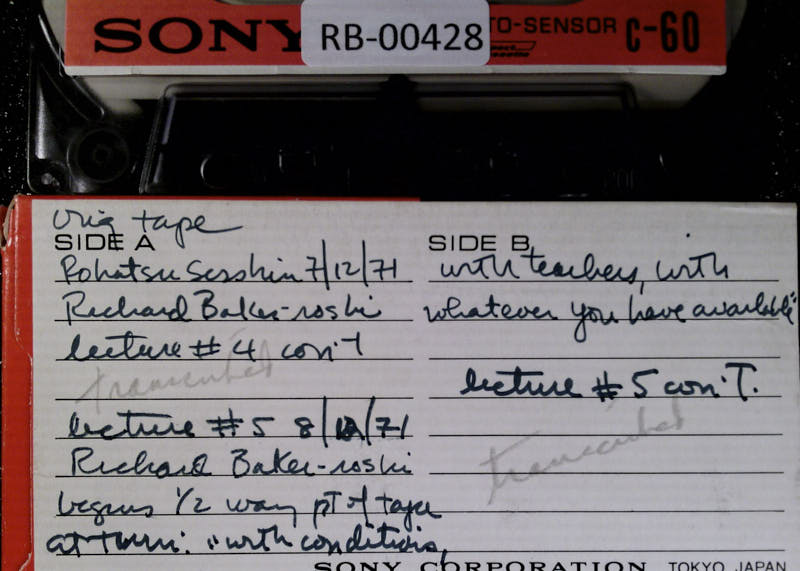 SONY
RB-00428
TO-SENSOR C-60
Orig tape
SIDE A
Rohatsu Sesshin 7/12/71
Richard Baker-roshi
lecture #4 con't
transcribed
lecture #5 8/12/71
Richard Baker-roshi
begins 1/2 way pt of tape
at turn: "with conditions,
SIDE B
with teachers, with
whatever you have available"
lecture #5 con'T.
transcribed
SONY CORPORATION TOKYO JAPAN